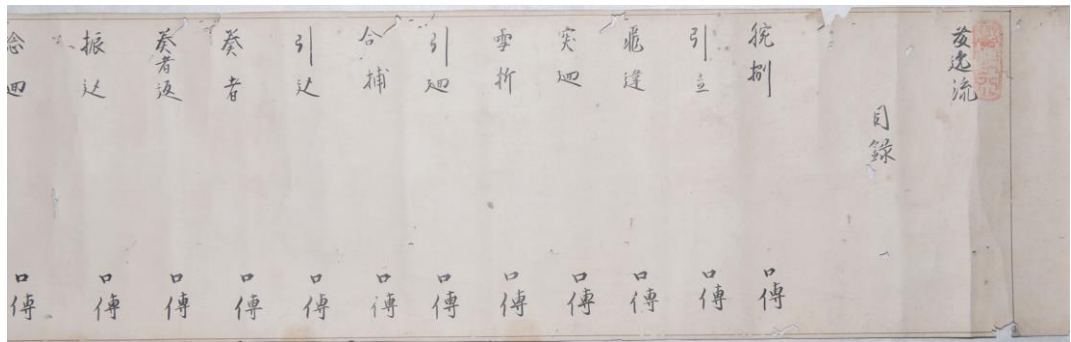 流
目錄
捌 口傳
引立 口傳
飛違 口傳
突廻 口傳
雪折 口傳
引廻 口傳
合捕 口傳
引込 口傳
葵者 口傳
葵者返 口傳
振込 口傳
廻 口傳